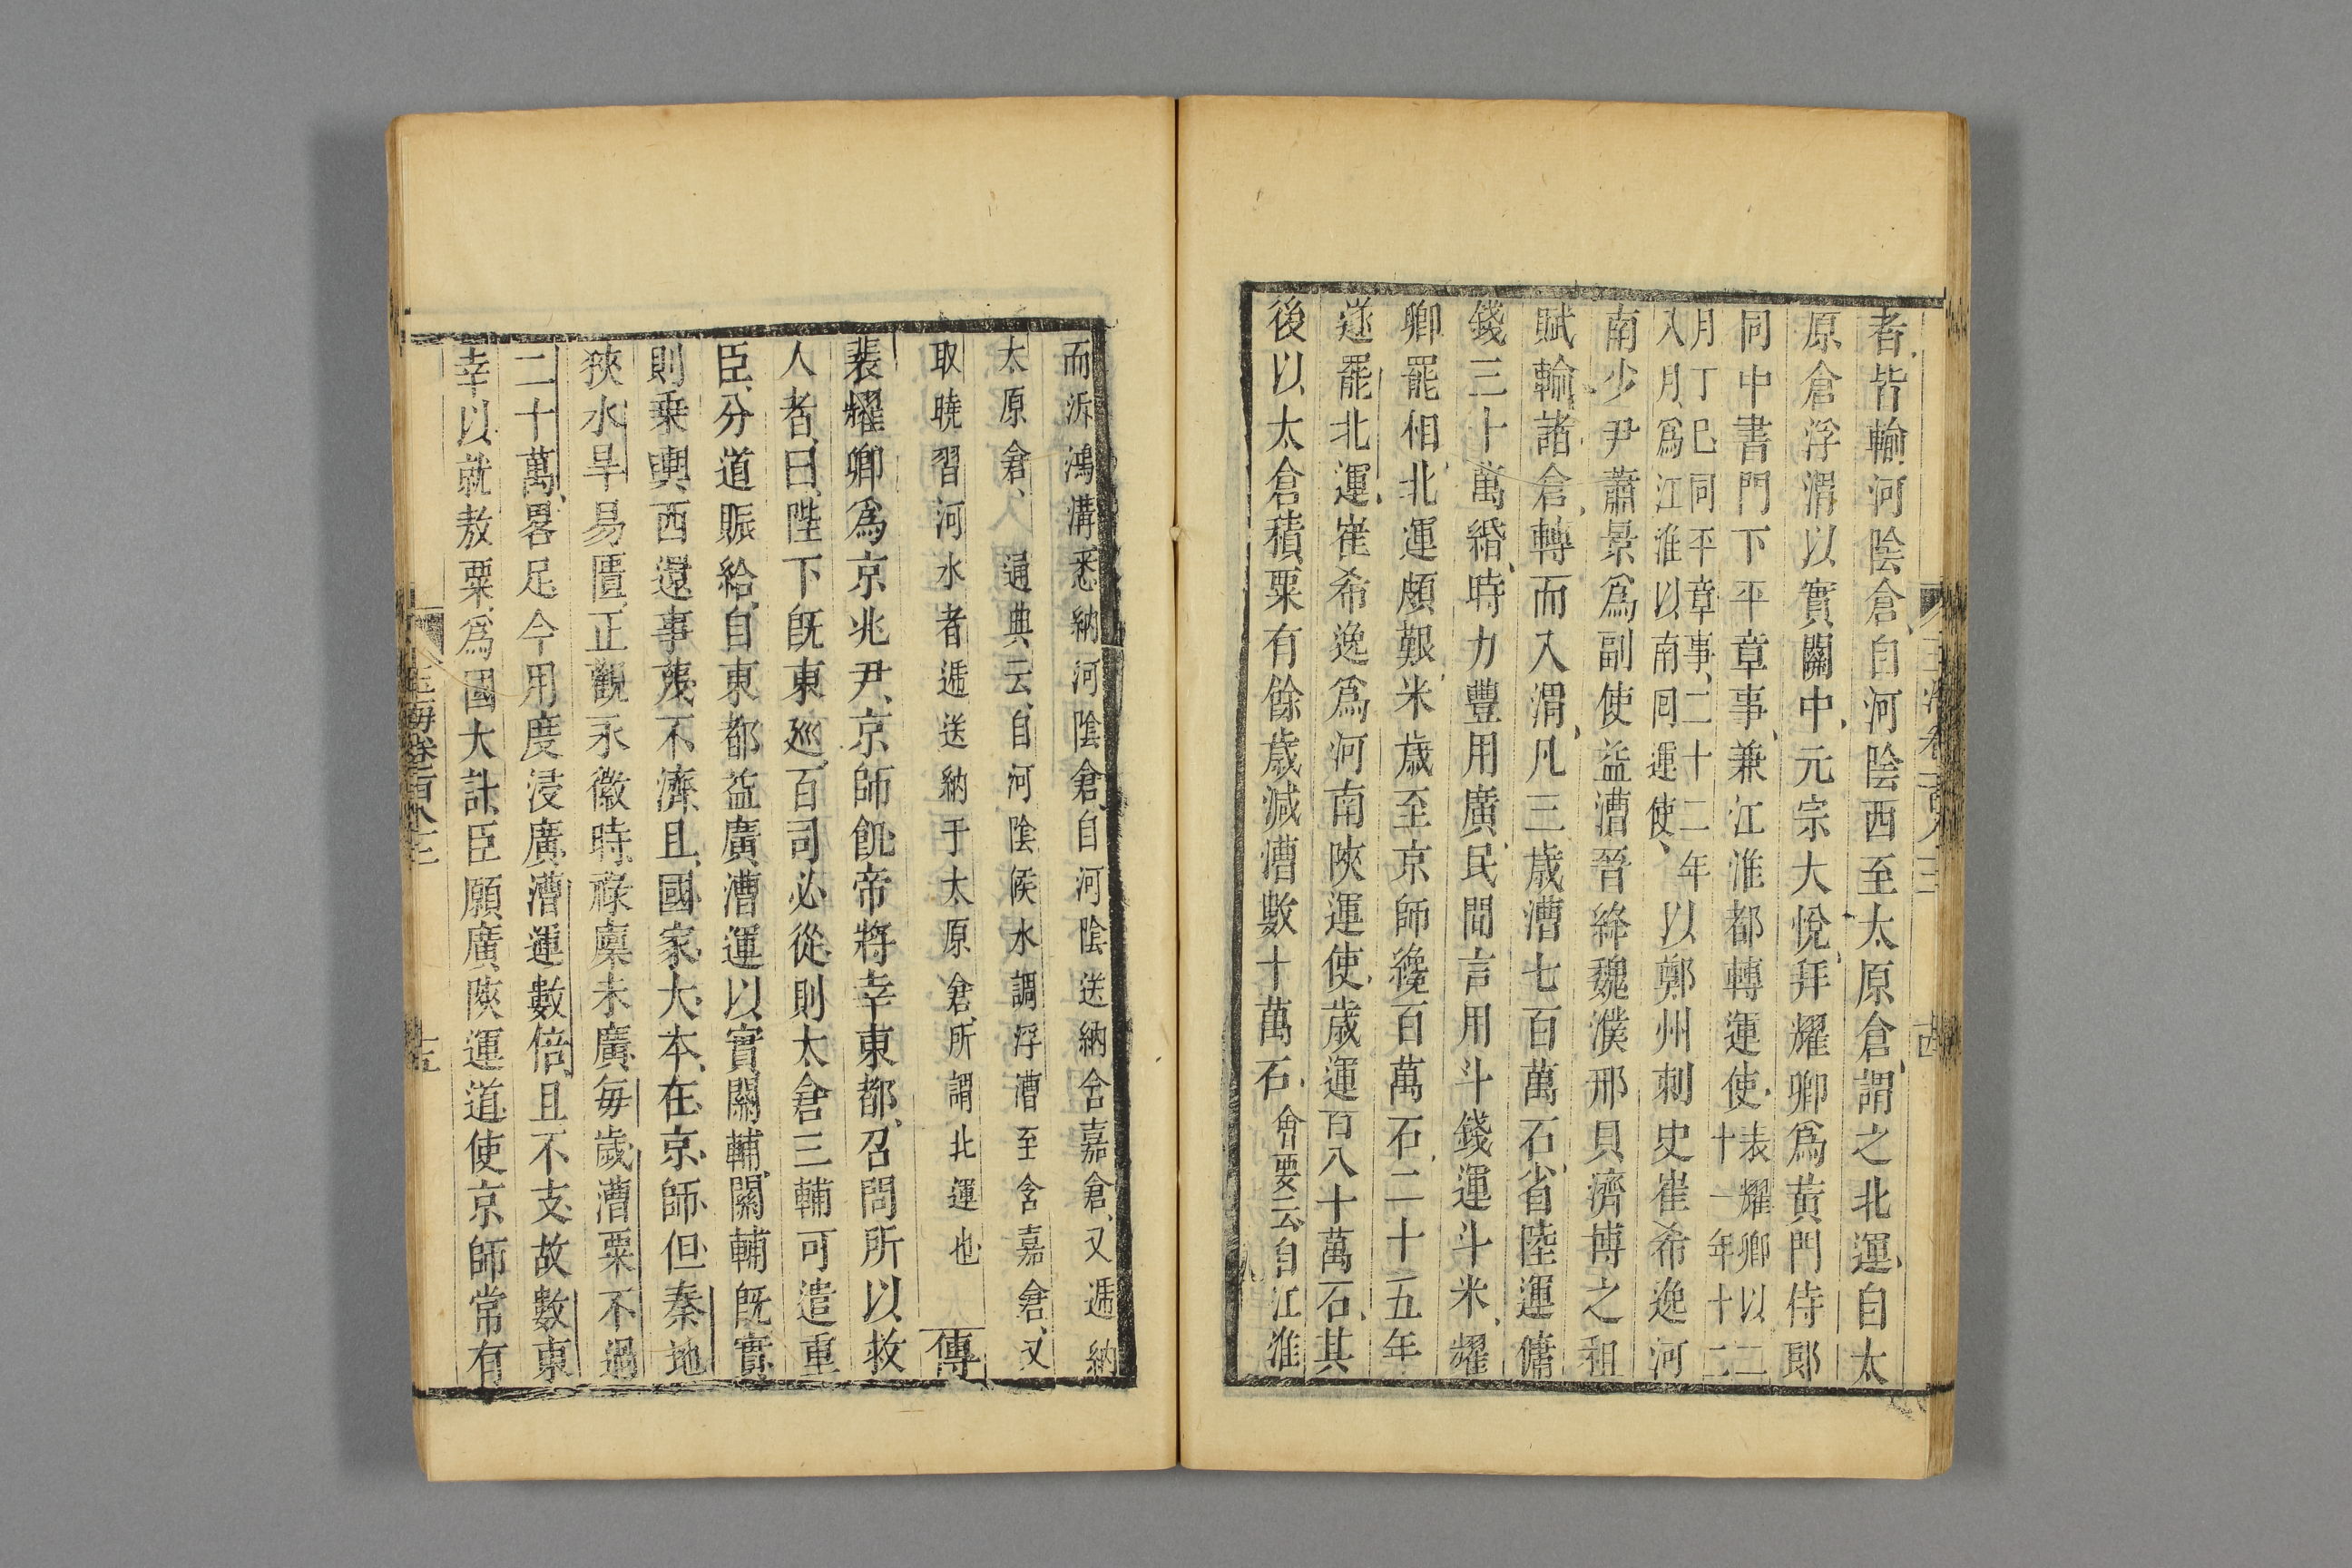 者皆輸河陰倉自河陰西至太原倉謂之北運自太
原倉浮渭以實關中元宗大悅拜耀卿爲黃門侍郎
同中書門下平章事兼江淮都轉運使表耀卿以二十一年十二
月丁巳同平章事二十二年八月爲江淮以南囘運使以鄭州刺史崔希逸河
南少尹蕭景爲副使益漕晉絳魏濮邢貝濟博之租
賦輸諸倉轉而入渭凡三歲漕七百萬石省陸運傭
錢三十萬緡時力豐用廣民間言用斗錢運斗米耀
卿罷相北運頗艱米歲至京師纔百萬石二十五年
遂罷北運崔希逸爲河南陝運使歲運百八十萬石其
後以太倉積粟有餘歲減漕數十萬石會要云自江淮
玉海卷百八十二
古
而泝鴻溝悉納河陰倉自河陰送納含嘉倉又遞納
太原倉通典云自河陰候水調浮漕至含嘉倉又
取曉習河水者遞送納于太原倉所謂北運也傳
裴耀卿爲京兆尹京師飢帝將幸東都召問所以救
人者曰陛下旣東廵百司必從則太倉三輔可遣重
臣分道賑給自東都益廣漕運以實關輔關輔旣實
則乗輿西還事蔑不濟且國家大本在京師但秦地
狹水旱易匱正觀永徽時祿廩未廣每歲漕粟不過
二十萬畧足今用度浸廣漕運數倍且不支故數東
幸以就敖粟爲國大計臣願廣陝運道使京師常有
玉海卷百八十二
十五